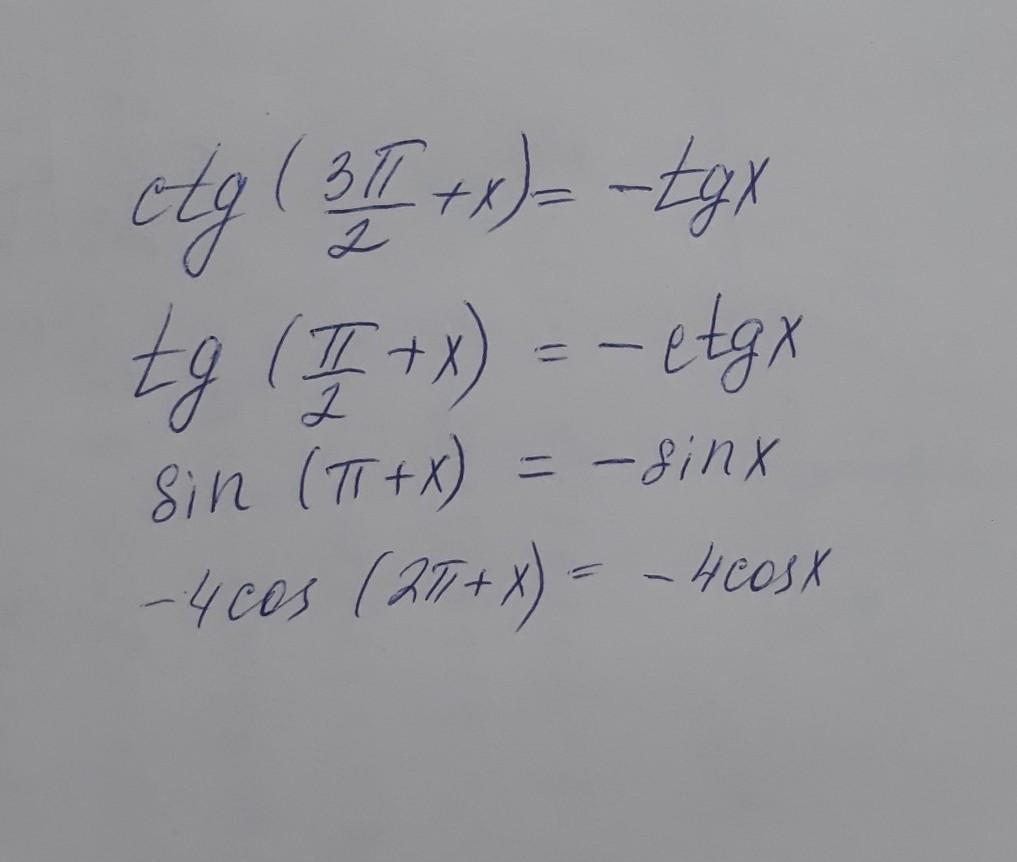 ctg (3π/2 + x) = -tgx
tg (π/2 + x) = -ctgx
sin (π+x) = -sinx
-4cos (2π+x) = -4cosx